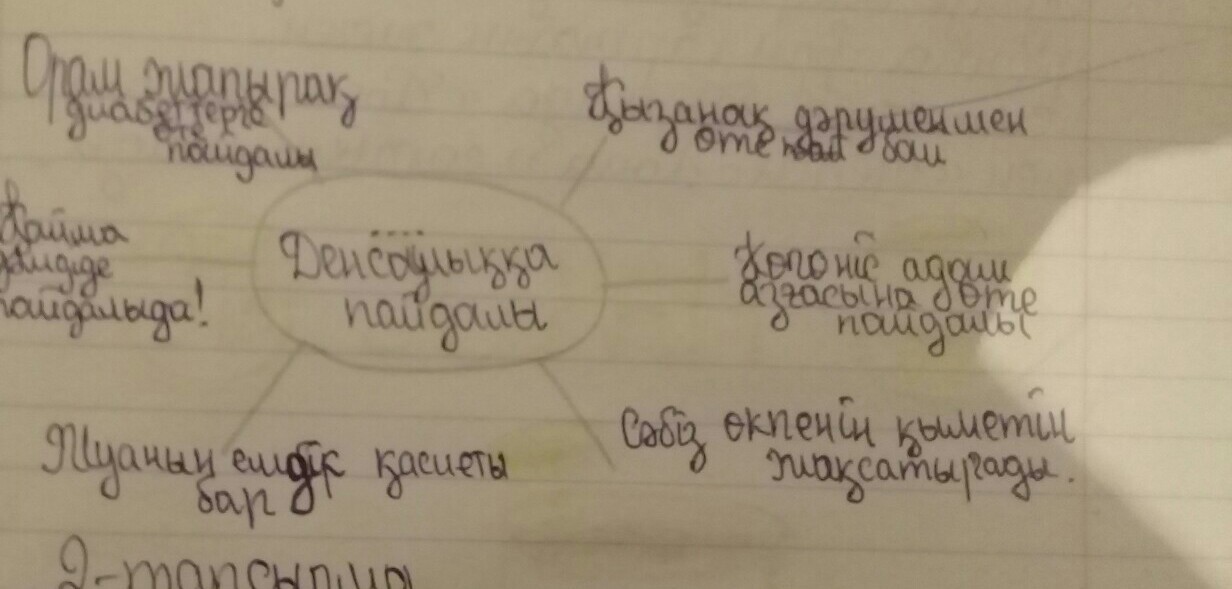 Орам жапырақ
диабеттерге
өте
пайдалы
Қызанақ дәруменмен
өте бай
Қайма
пайдалыда!
Денсаулыққа
пайдалы
Көгөніс адам
ағзасына өте
пайдалы
Жуаның емдік қасиеты
бар
Сәбіз өкпенін қыметін
жақсатырады.
2-тапсырма